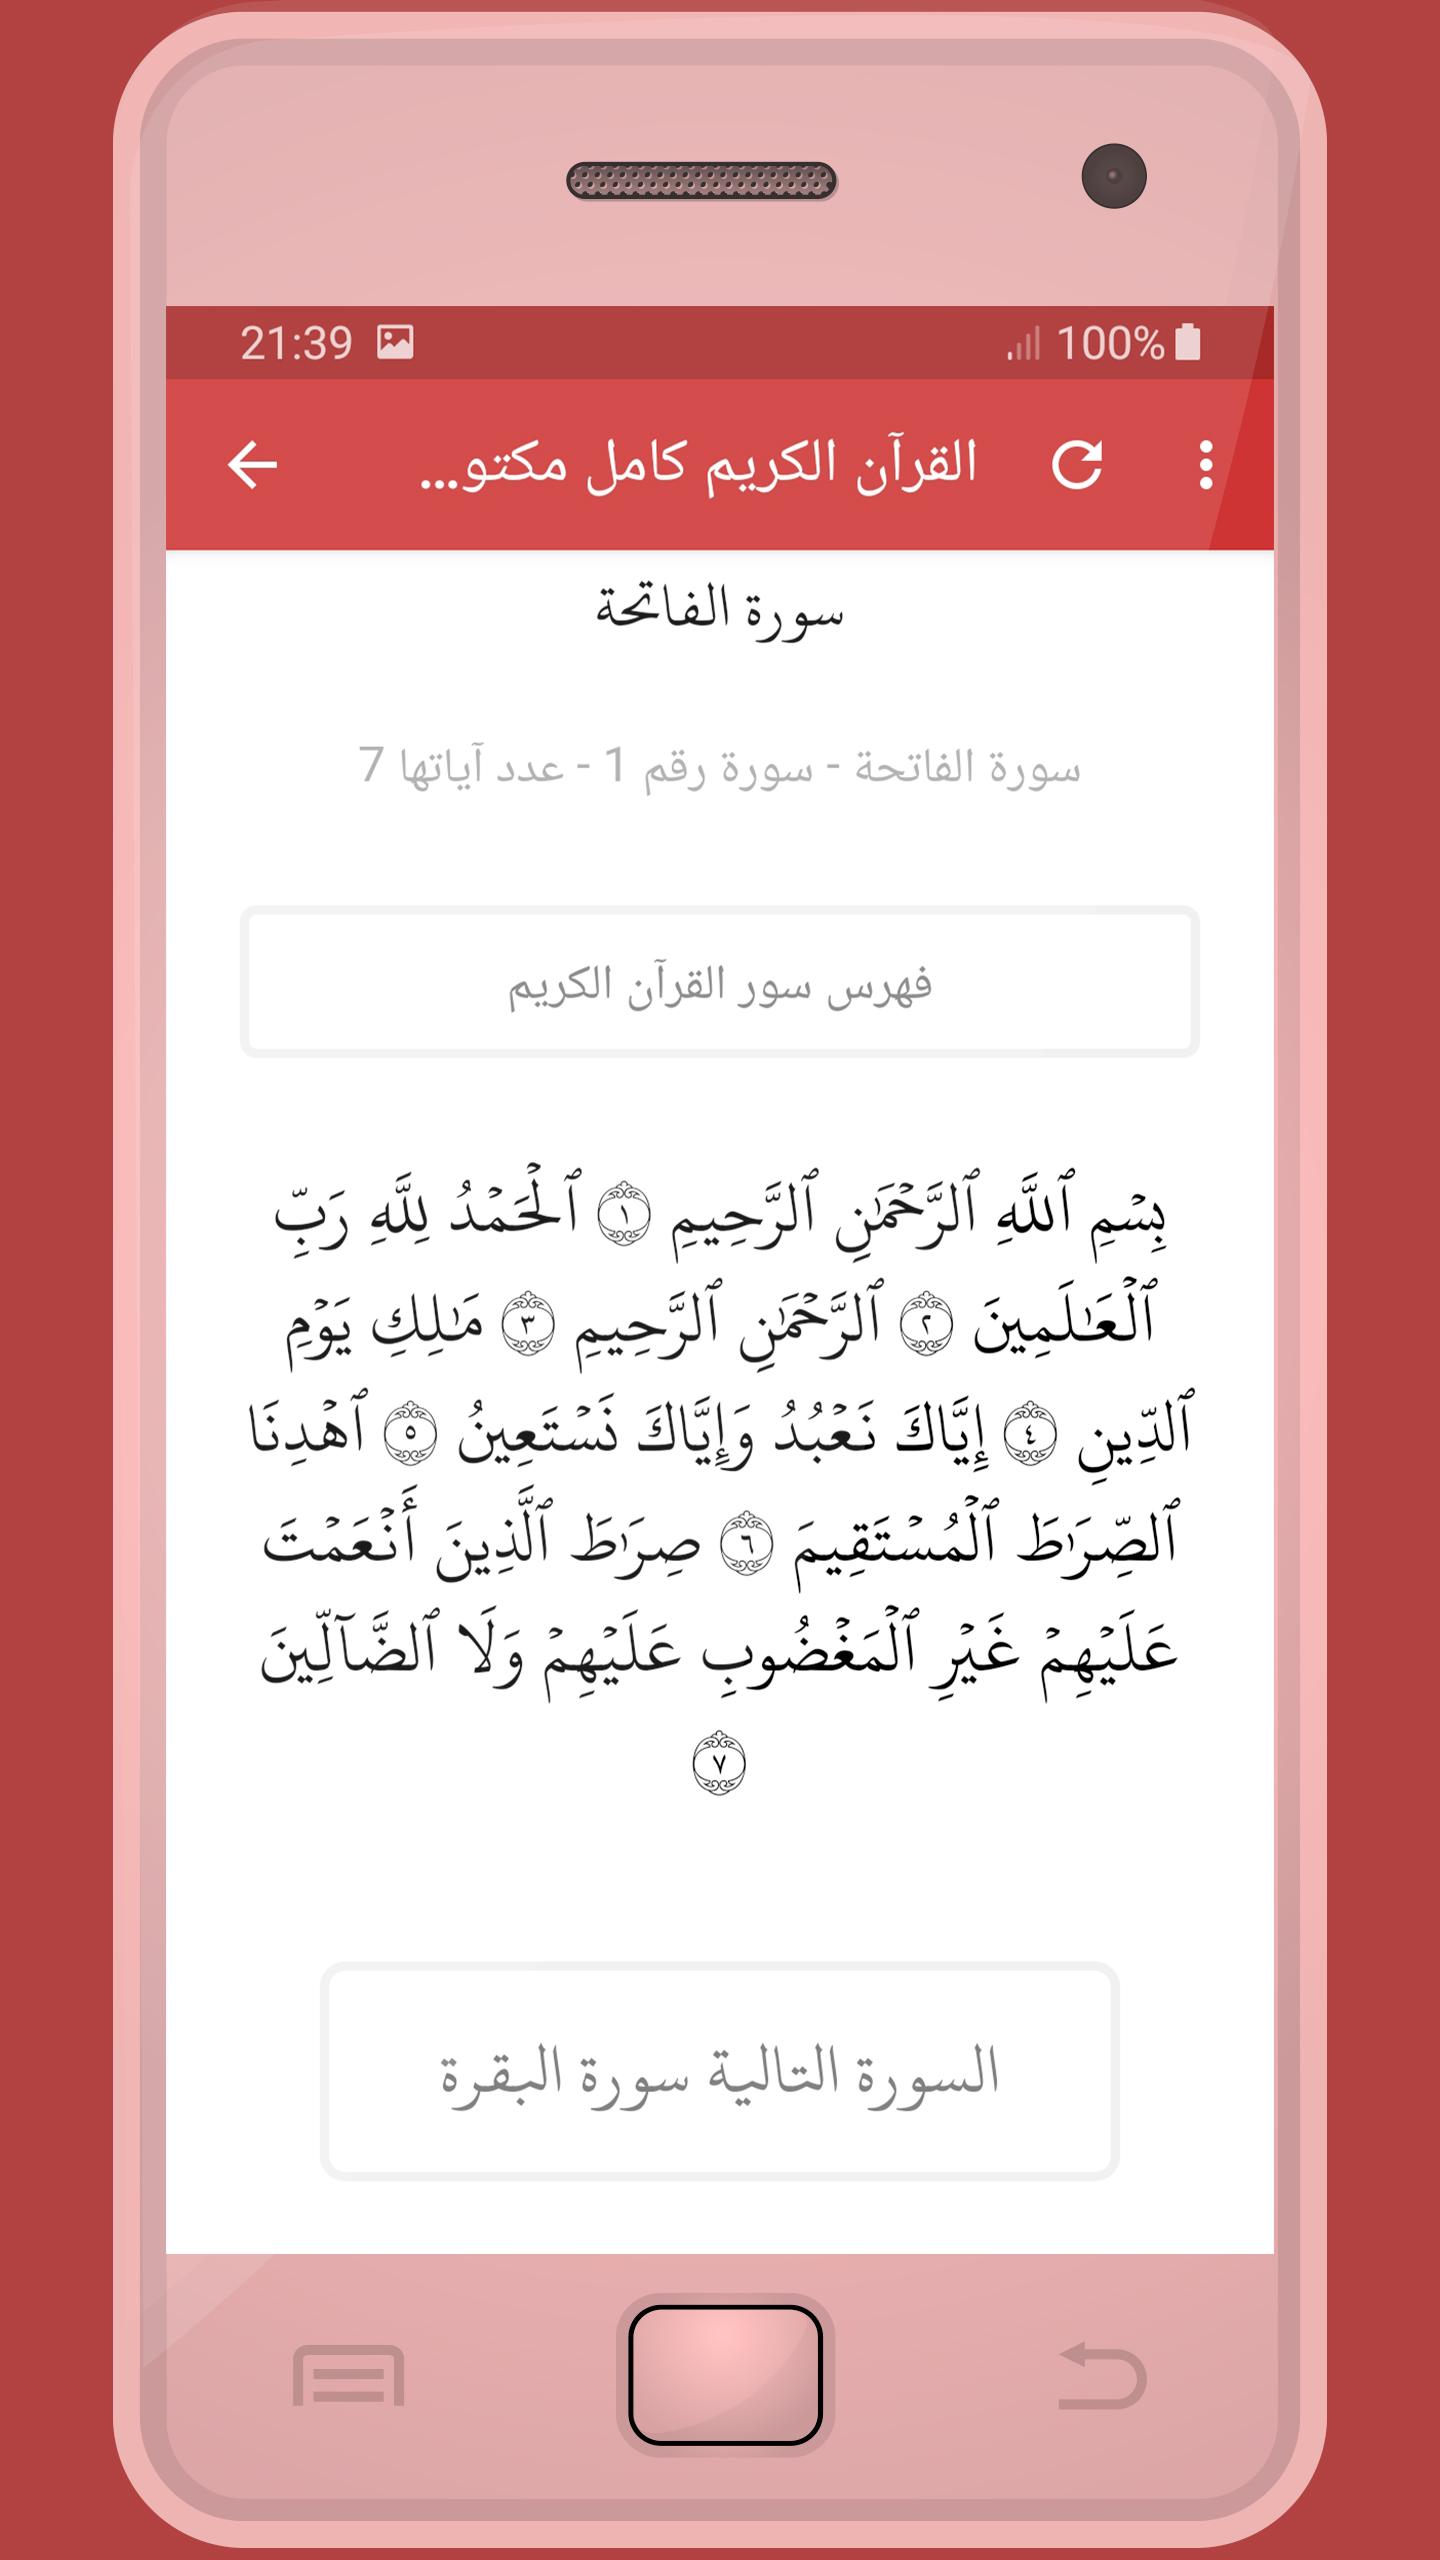 21:39 100%
القرآن الكريم كامل مكتو...
سورة الفاتحة
سورة الفاتحة - سورة رقم 1 - عدد آياتها 7
فهرس سور القرآن الكريم
بِسۡمِ ٱللَّهِ ٱلرَّحۡمَٰنِ ٱلرَّحِيمِ ١ ٱلۡحَمۡدُ لِلَّهِ رَبِّ
ٱلۡعَٰلَمِينَ ٢ ٱلرَّحۡمَٰنِ ٱلرَّحِيمِ ٣ مَٰلِكِ يَوۡمِ
ٱلدِّينِ ٤ إِيَّاكَ نَعۡبُدُ وَإِيَّاكَ نَسۡتَعِينُ ٥ ٱهۡدِنَا
ٱلصِّرَٰطَ ٱلۡمُسۡتَقِيمَ ٦ صِرَٰطَ ٱلَّذِينَ أَنۡعَمۡتَ
عَلَيۡهِمۡ غَيۡرِ ٱلۡمَغۡضُوبِ عَلَيۡهِمۡ وَلَا ٱلضَّآلِّينَ
٧
السورة التالية سورة البقرة